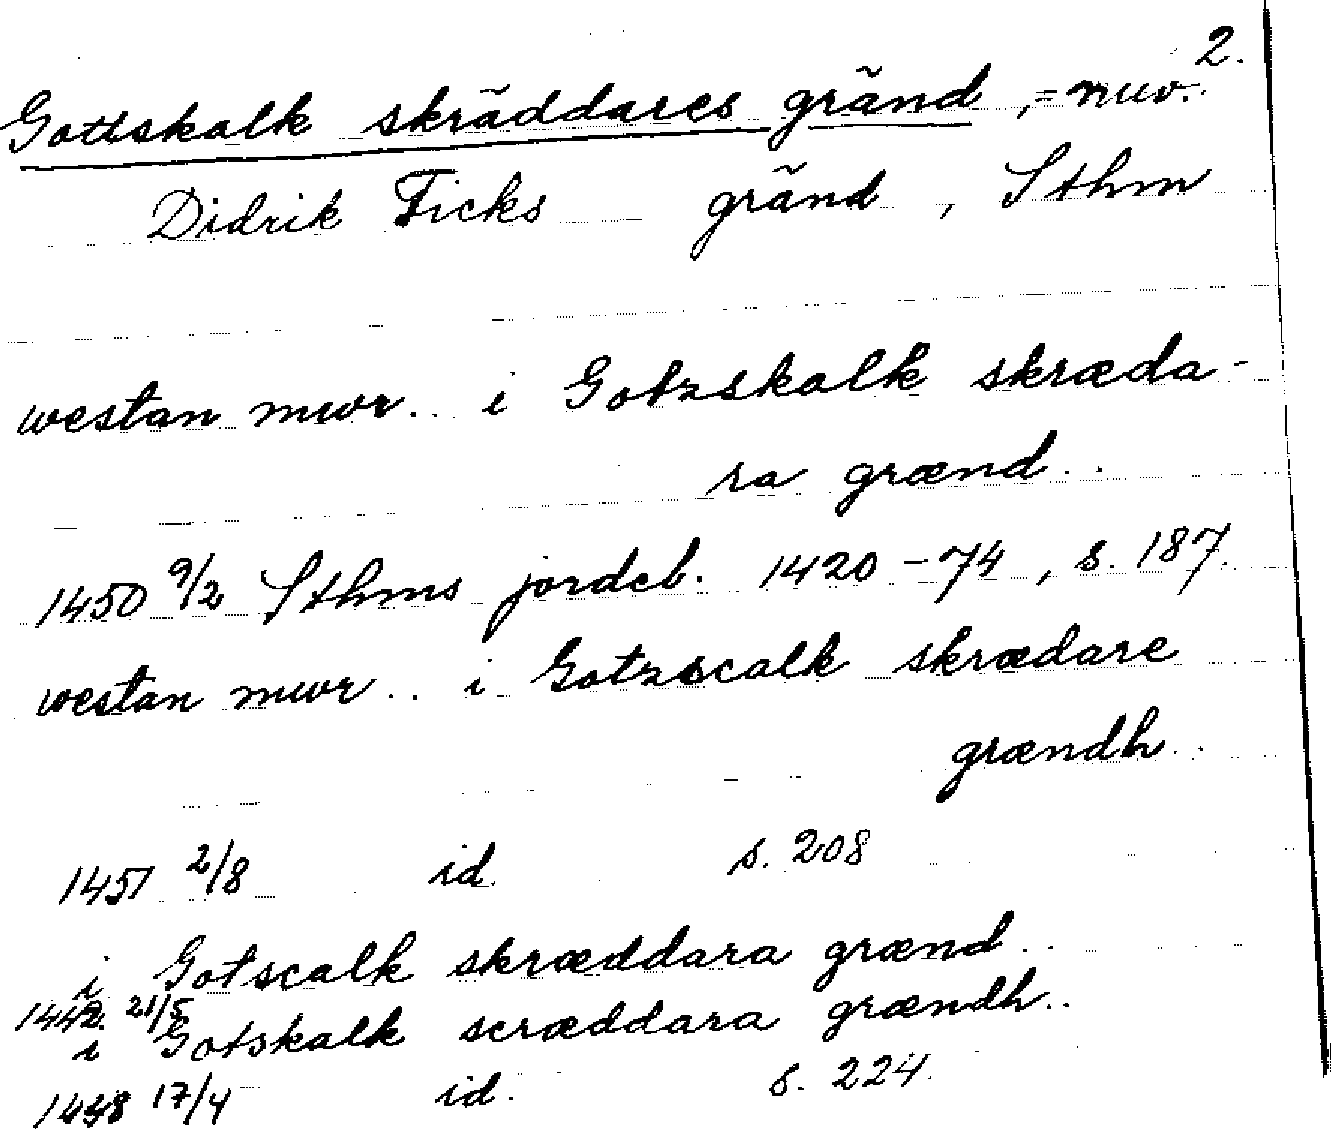 2.
Gottskalk skräddares gränd, = nuv.
Didrik Ficks gränd, Sthm
westan mwr .. i Gotzskalk skræda-
ra grænd ..
1450 9/2 Sthms jordeb. 1420-74, s. 187.
westan mwr .. i Gotzscalk skrædare
grændh ..
1451 2/8 id. s. 208
i Gotscalk skræddara grænd ..
1442 21/5
i Gotskalk scræddara grændh ..
17/4 id. s. 224.